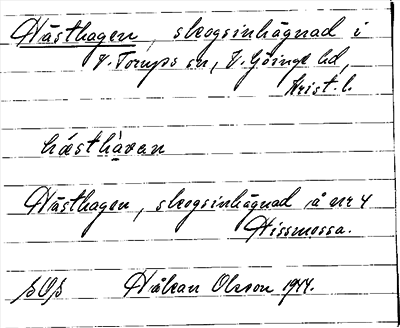 Hästhagen, skogsinhägnad i
V. Torups sn, V. Göinge hd,
Krist. l.
hæsthàγən
Hästhagen, skogsinhägnad å nr 4
Hissmossa.
Håkan Olsson 1944.